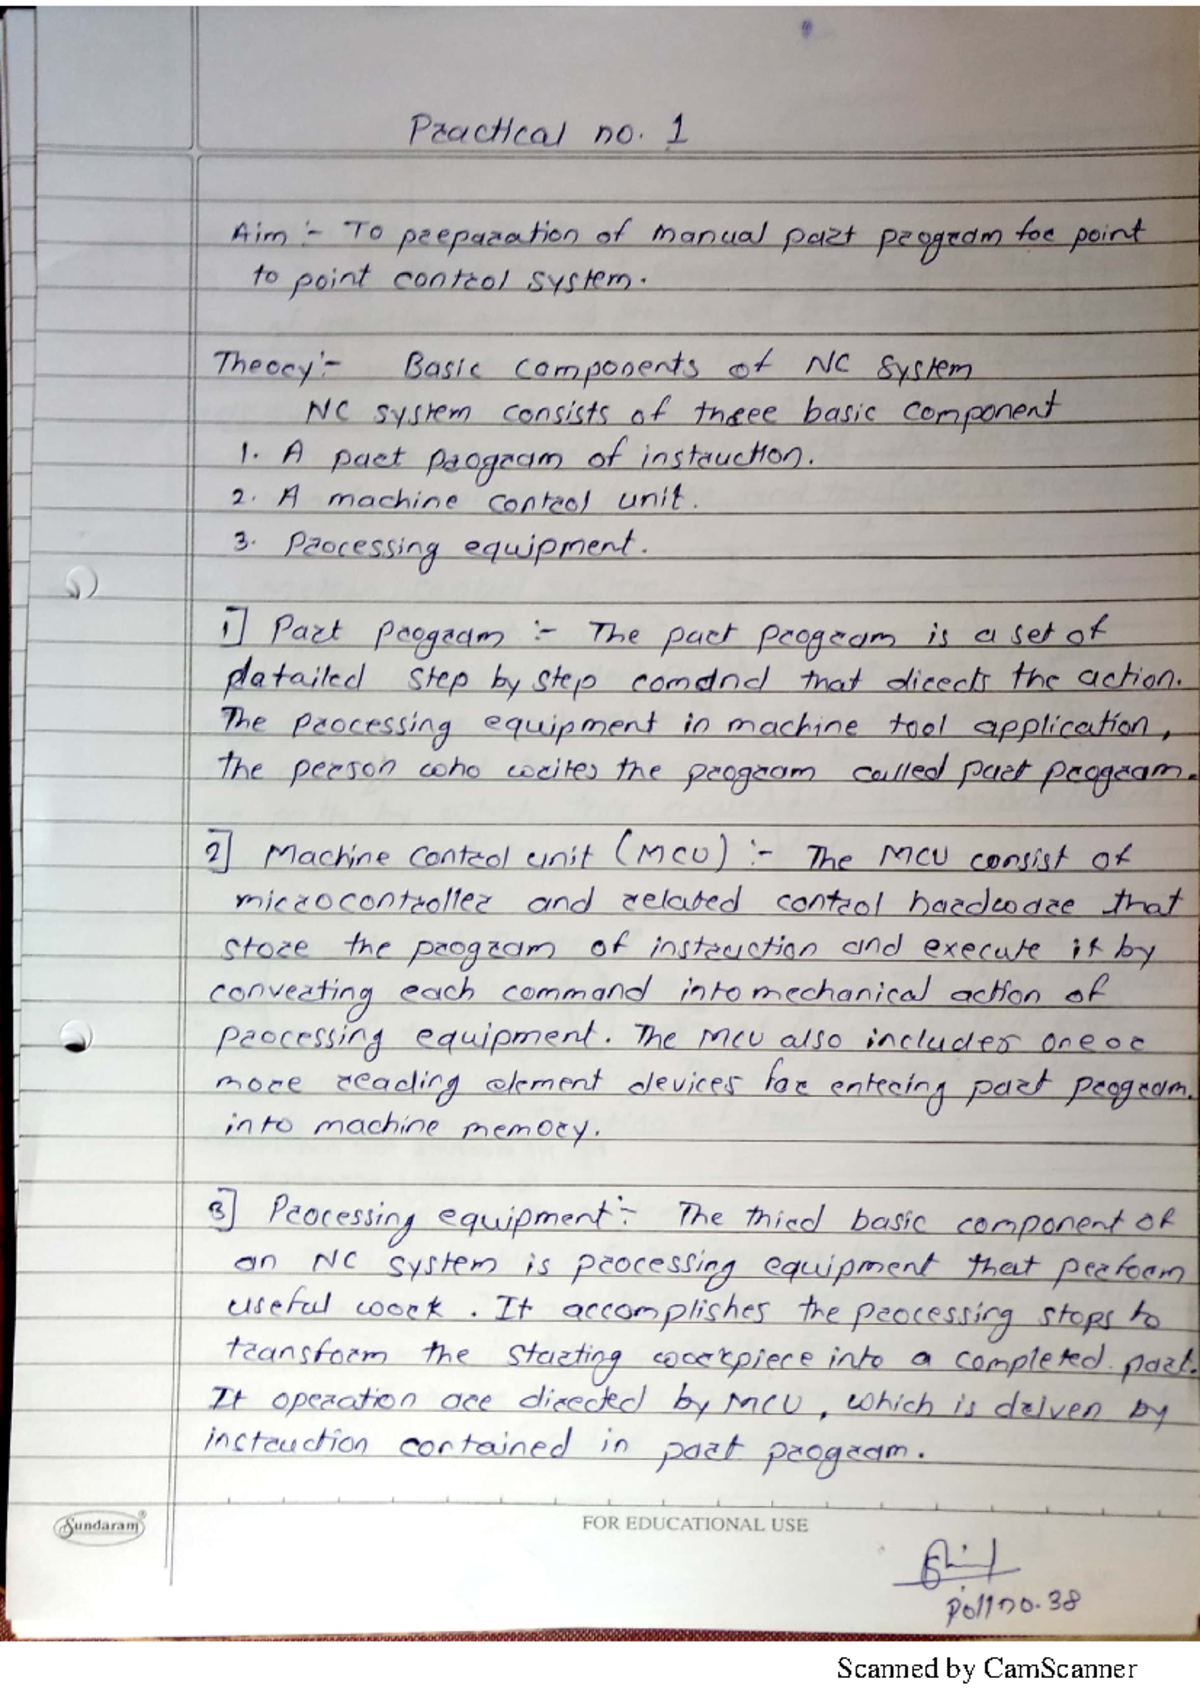 Practical no. 1
Aim :- To preparation of manual part program for point
to point control system.
Theory :- Basic components of NC system
NC system consists of three basic component
1. A part program of instruction.
2. A machine control unit.
3. Processing equipment.
1] Part program :- The part program is a set of
datailed step by step comand that directs the action.
The processing equipment in machine tool application,
the person who writes the program called part program.
2] Machine control unit (MCU) :- The MCU consist of
microcontroller and related control hardware that
store the program of instruction and execute it by
converting each command into mechanical action of
processing equipment. The MCU also includes one or
more reading element devices for entering part program.
into machine memory.
3] Processing equipment :- The third basic component of
an NC system is processing equipment that perform
useful work. It accomplishes the processing stops to
transform the starting workpiece into a completed part.
It operation are directed by MCU, which is driven by
instruction contained in part program.
Sundaram
FOR EDUCATIONAL USE
Roll no. 38
Scanned by CamScanner